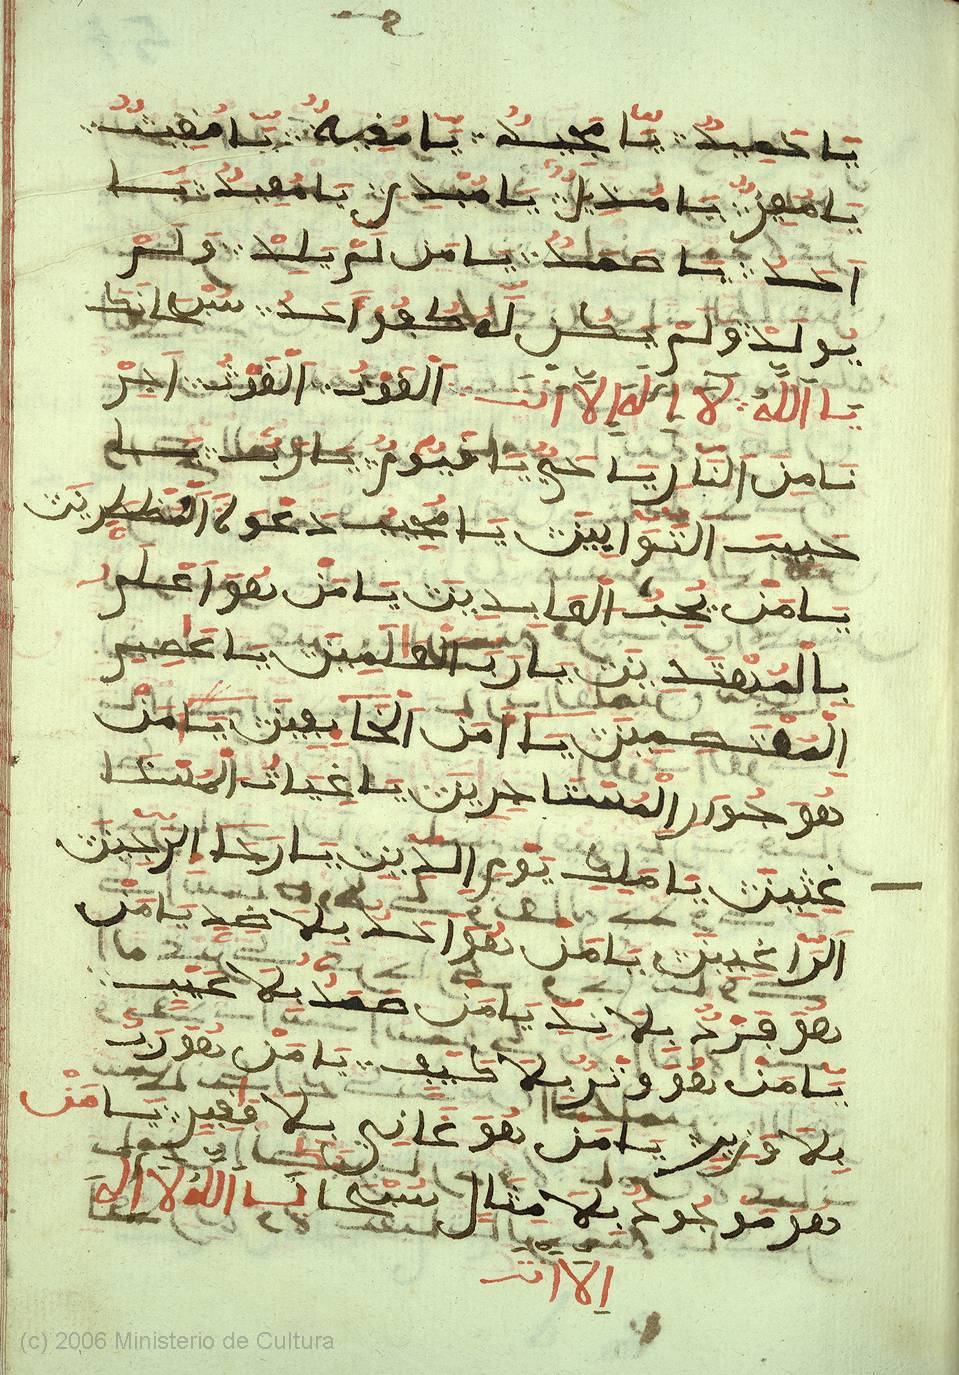 يَا حَمِيدُ يَا مَجِيدُ يَا مُقِيتُ
يَا مُعِزُّ يَا مُذِلُّ يَا مُبْدِي يَا مُعِيدُ يَا
اَحَدُ يَا صَمَدُ يَا مَن لَمْ يَلِدْ وَلَمْ
يُولَدْ وَلَمْ يَكُن لَهُ كُفُوًا اَحَدٌ سُبْحَانَكَ
يَا اَللَّهُ لَا اِلَهَ اِلَّا اَنْتَ اَلْغَوْثُ الْغَوْثُ اَجِرْ
نَا مِنَ النَّارِ يَا حَيُّ يَا قَيُّومُ يَا رَبُّ يَا
حَبِيبَ التَّوَّابِينَ يَا مُجِيبُ دَعْوَةَ الْمُضْطَرِّينَ
يَا مَنْ يُحِبُّ الْعَابِدِينَ يَا مَنْ هُوَ اَعْلَمُ
بِالْمُهْتَدِينَ يَا رَبَّ الْعَلَمِينَ يَا عَصِيمَ
الْمُعْتَصِمِينَ يَا اَمْنَ الْخَايِفِينَ يَا مَنْ
هُوَ جُوَارِ الْمُسْتَاجِرِينَ يَا غِيَاثَ الْمُسْتَا
غِثِينَ يَا مَلِكَ يَوْمِ الدِّينِ يَا رَجَا الرَّاجِينَ
الرَّاغِبِينَ يَا مَنْ هُوَ اَحَدٌ بِلَا ضِدٍ يَا مَنْ
هُوَ فَرْدٌ بِلَا نِدٍّ يَا مَنْ صَمَدُ بِلَا عَيْبٍ
يَا مَنْ هُوَ وِتْرٌ بِلَا كَيْفٍ يَا مَنْ هُوَ رَبٌّ
بِلَا وَزِيرٍ يَا مَنْ هُوَ غَانِي بِلَا فَقِيرٍ يَا مَنْ
هُوَ مَوْجُودٌ بِلَا مِثَالٍ سُبْحَا يَا اللَّهُ لَا اِلَهَ
اِلَّا اَنْتَ
(c) 2006 Ministerio de Cultura